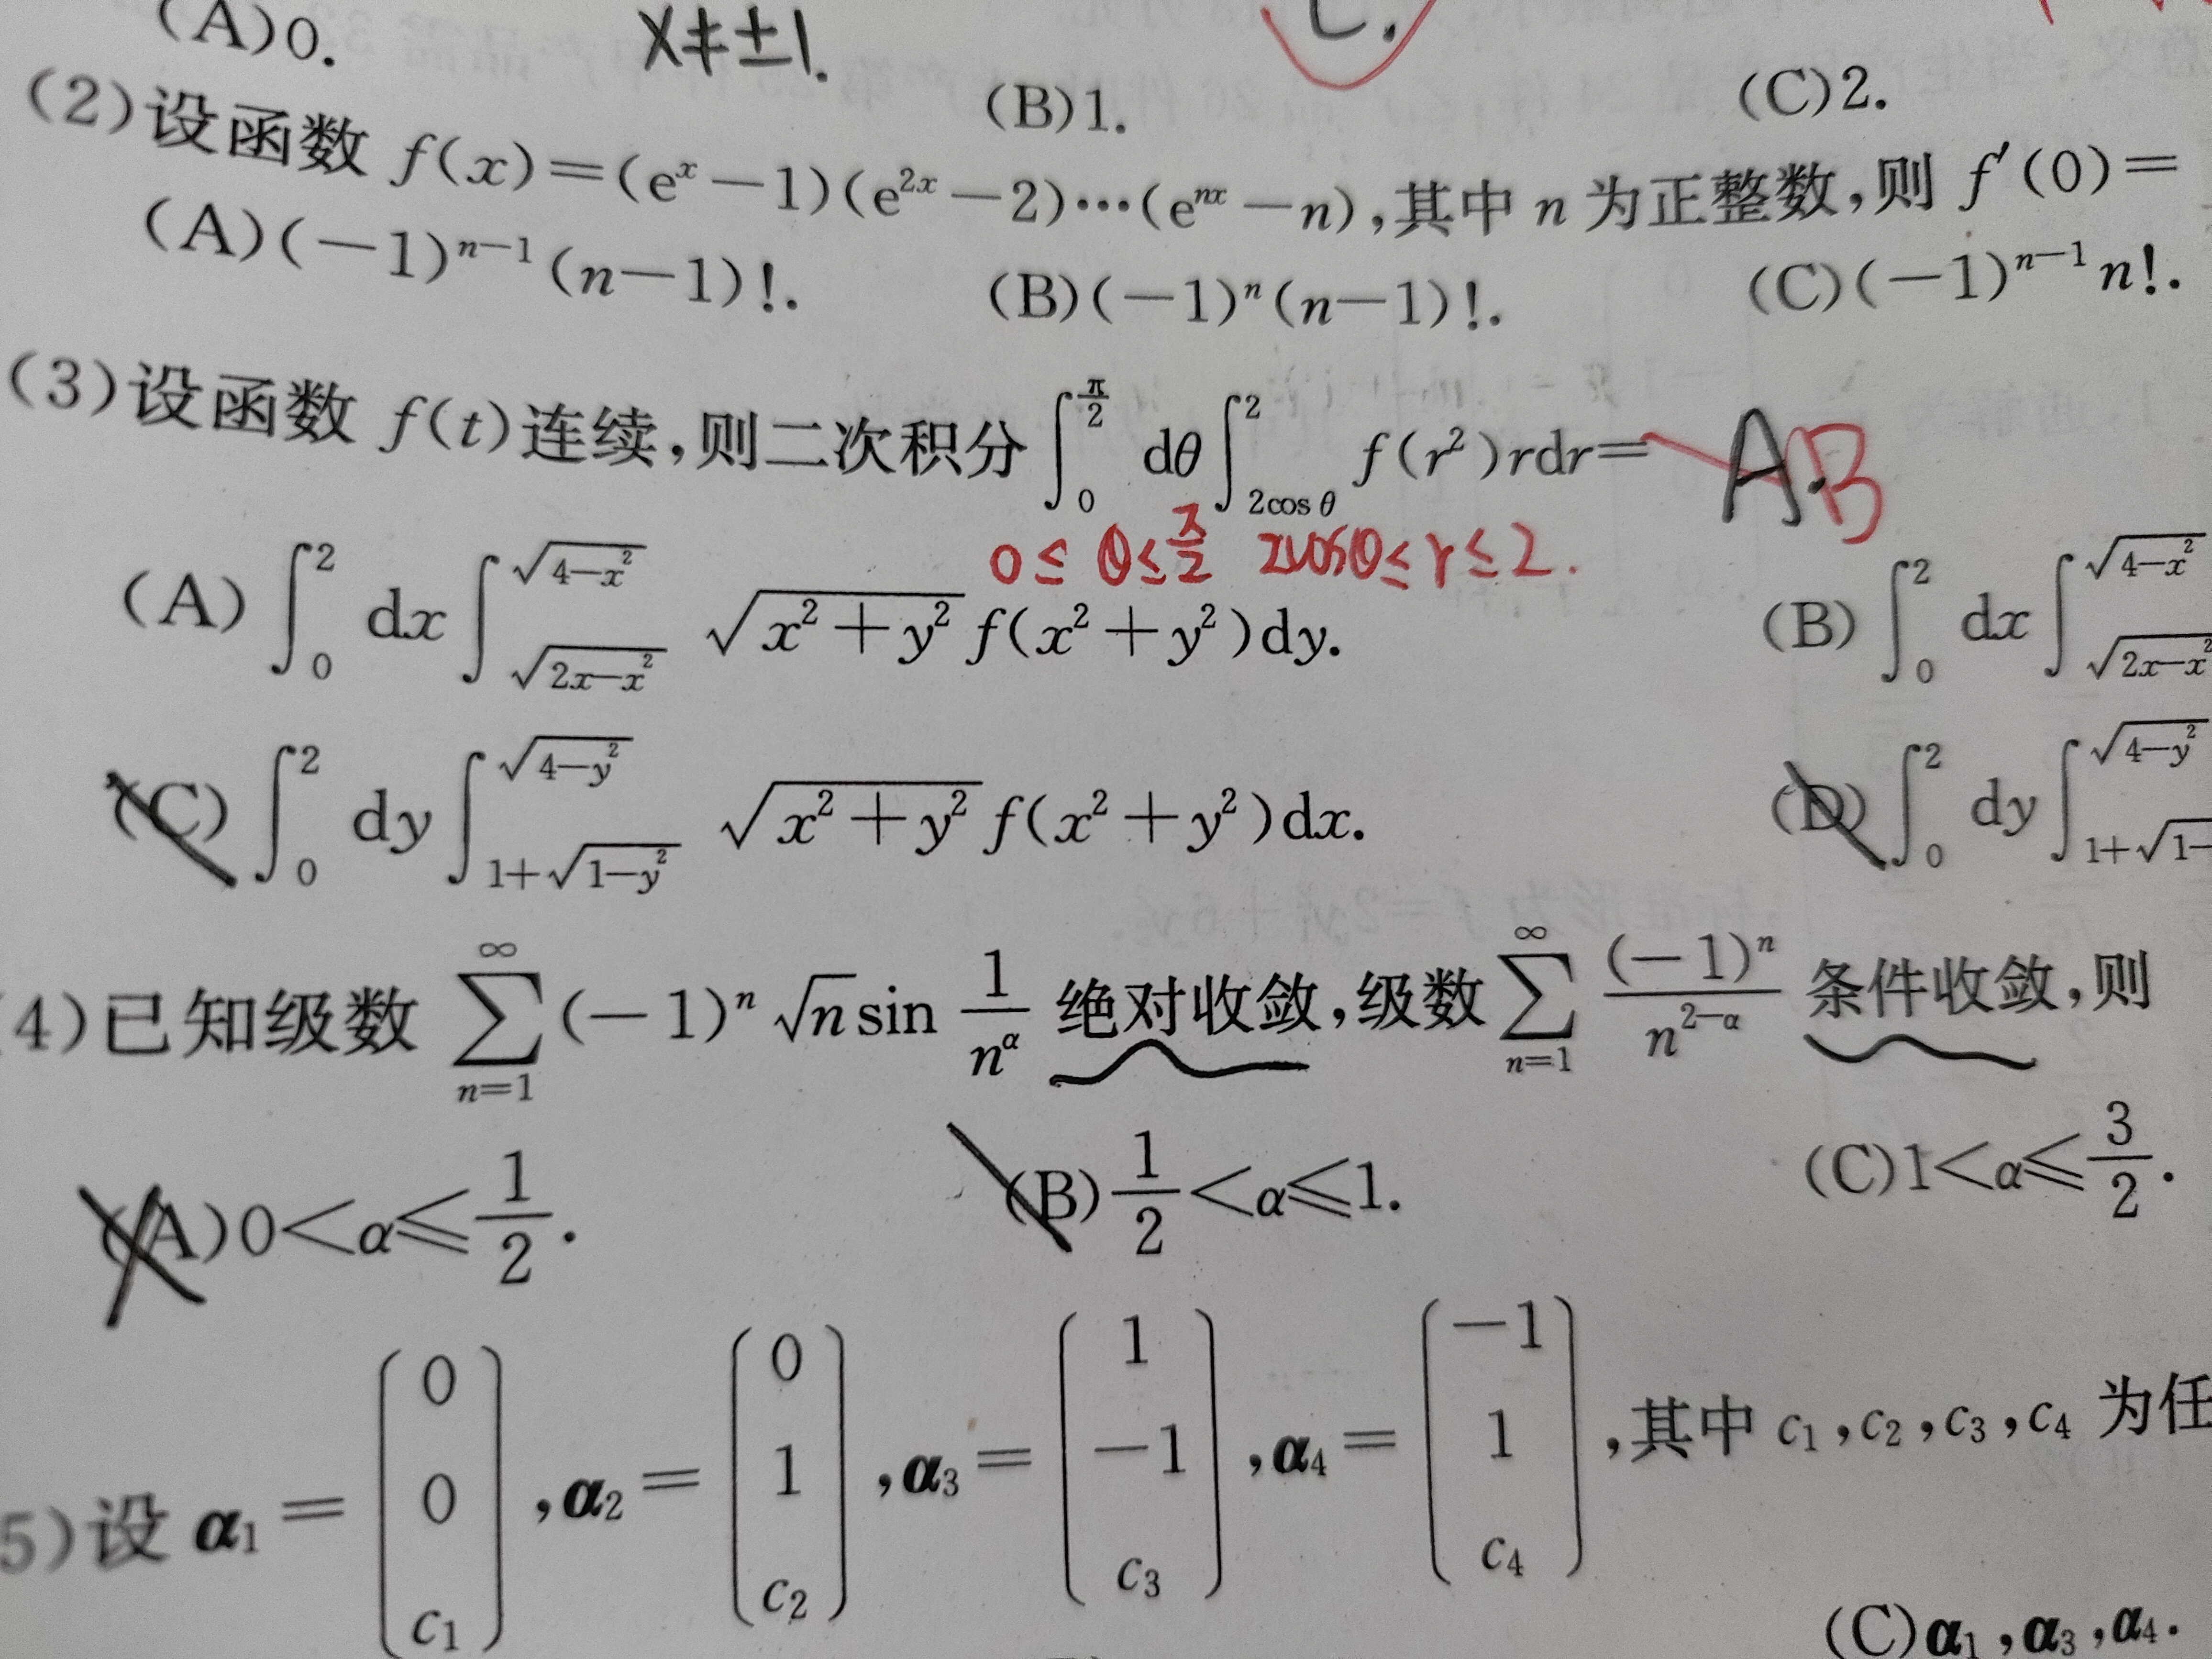 (A)0.
x≠±1.
C.
(B)1.
(C)2.
(2)设函数 f(x)=(eˣ−1)(e²ˣ−2)⋯(eⁿˣ−n),其中 n 为正整数,则 f′(0)=
(A)(−1)ⁿ⁻¹(n−1)!.
(B)(−1)ⁿ(n−1)!.
(C)(−1)ⁿ⁻¹n!.
(3)设函数 f(t)连续,则二次积分∫_0^{π/2} dθ∫_{2cos θ}^2 f(r²)rdr= A. B
0≤θ≤π/2 2cosθ≤r≤2.
(A)∫_0^2 dx∫_{√(2x−x²)}^{√(4−x²)} √(x²+y²) f(x²+y²)dy.
(B)∫_0^2 dx∫_{√(2x−x²)}^{√(4−x²)}
(C)∫_0^2 dy∫_{1+√(1−y²)}^{√(4−y²)} √(x²+y²) f(x²+y²)dx.
(D)∫_0^2 dy∫_{1+√(1−}^{√(4−y²)}
4)已知级数 ∑_{n=1}^∞ (−1)ⁿ√n sin 1/n^α 绝对收敛,级数 ∑_{n=1}^∞ (−1)ⁿ/n^{2−α} 条件收敛,则
(A)0<α⩽1/2.
(B)1/2<α⩽1.
(C)1<α⩽3/2.
5)设 α₁=(0 0 c₁),α₂=(0 1 c₂),α₃=(1 −1 c₃),α₄=(−1 1 c₄),其中 c₁,c₂,c₃,c₄ 为任
(C)α₁,α₃,α₄.